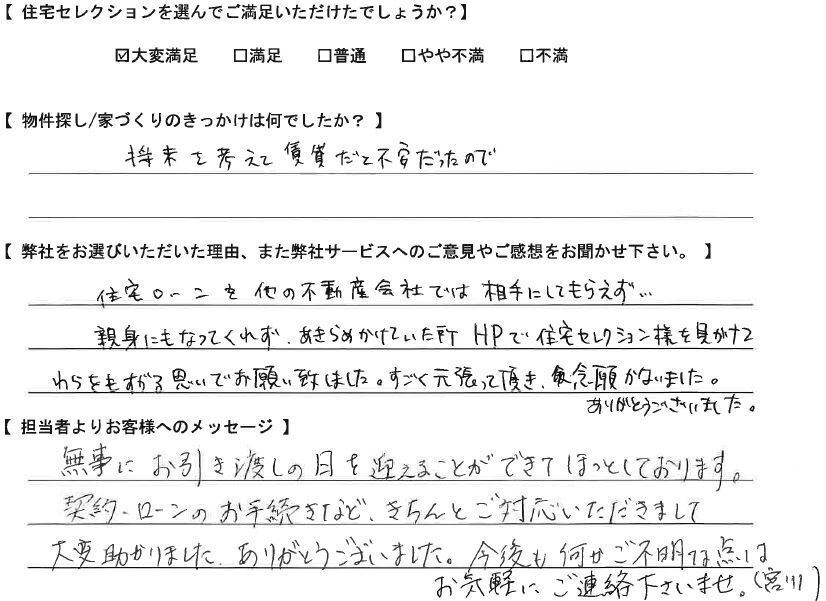 【 住宅セレクションを選んでご満足いただけたでしょうか？】
☑大変満足 □満足 □普通 □やや不満 □不満
【 物件探し/家づくりのきっかけは何でしたか？ 】
将来を考えて賃貸だと不安だったので
【 弊社をお選びいただいた理由、また弊社サービスへのご意見やご感想をお聞かせ下さい。 】
住宅ローンを他の不動産会社では相手にしてもらえず…
親身にもなってくれず、あきらめかけていた所HPで住宅セレクション様を見かけて
わらをもすがる思いでお願い致しました。すごく元張って頂き、無念願かないました。
ありがとうございました。
【 担当者よりお客様へのメッセージ 】
無事にお引き渡しの日を迎えることができてほっとしております。
契約・ローンのお手続きなど、きちんとご対応いただきまして
大変助かりました。ありがとうございました。今後も何かご不明な点は
お気軽にご連絡下さいませ。(宮川)